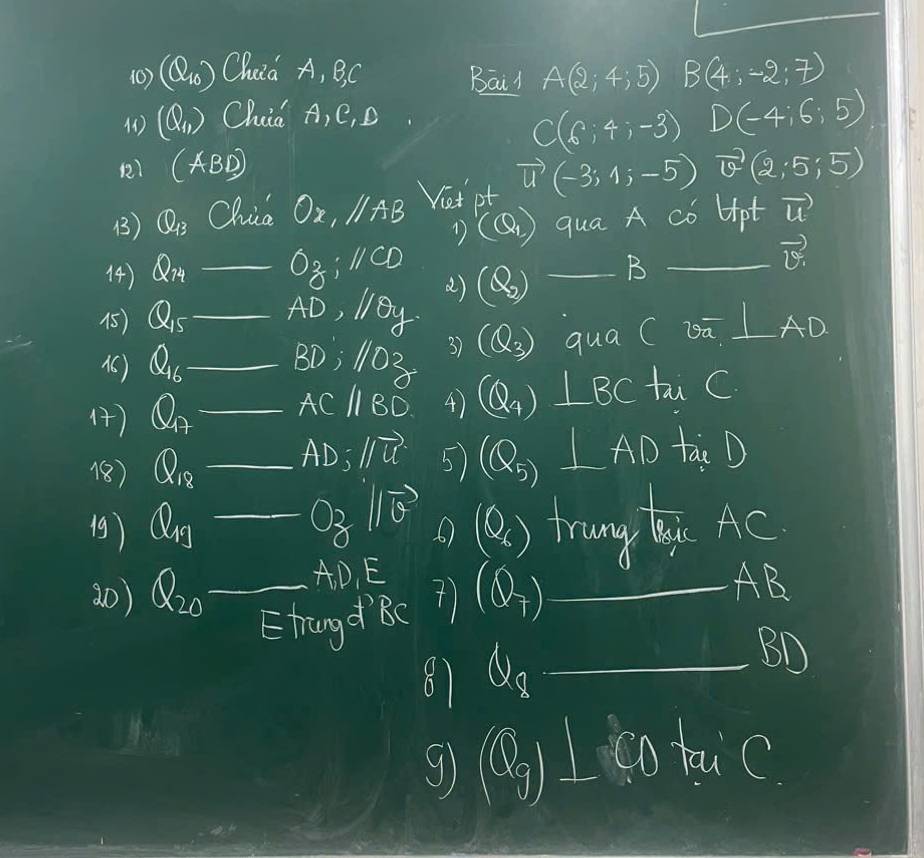 Bài 1 A(2; 4; 5) B(4; -2; 7)
C(6; 4; -3) D(-4; 6; 5)
u⃗ (-3; 1; -5) v⃗ (2; 5; 5)
Viết pt
1) (Q₁) qua A có Vtpt u⃗
2) (Q₂) —— B —— v⃗.
3) (Q₃) qua C và ⊥ AD.
4) (Q₄) ⊥ BC tại C.
5) (Q₅) ⊥ AD tại D
6) (Q₆) trung trực AC.
7) (Q₇) —— AB
8) Q₈ —— BD
9) (Q₉) ⊥ CD tại C.
10) (Q₁₀) Chứa A, B, C
11) (Q₁₁) Chứa A, C, D.
12) (ABD)
13) Q₁₃ Chứa Ox, // AB
14) Q₁₄ —— Oz; // CD
15) Q₁₅ —— AD, // Oy.
16) Q₁₆ —— BD; // Oz
17) Q₁₇ —— AC // BD.
18) Q₁₈ —— AD; // u⃗
19) Q₁₉ —— Oz // v⃗
20) Q₂₀ —— A, D, E
E trung đ' BC